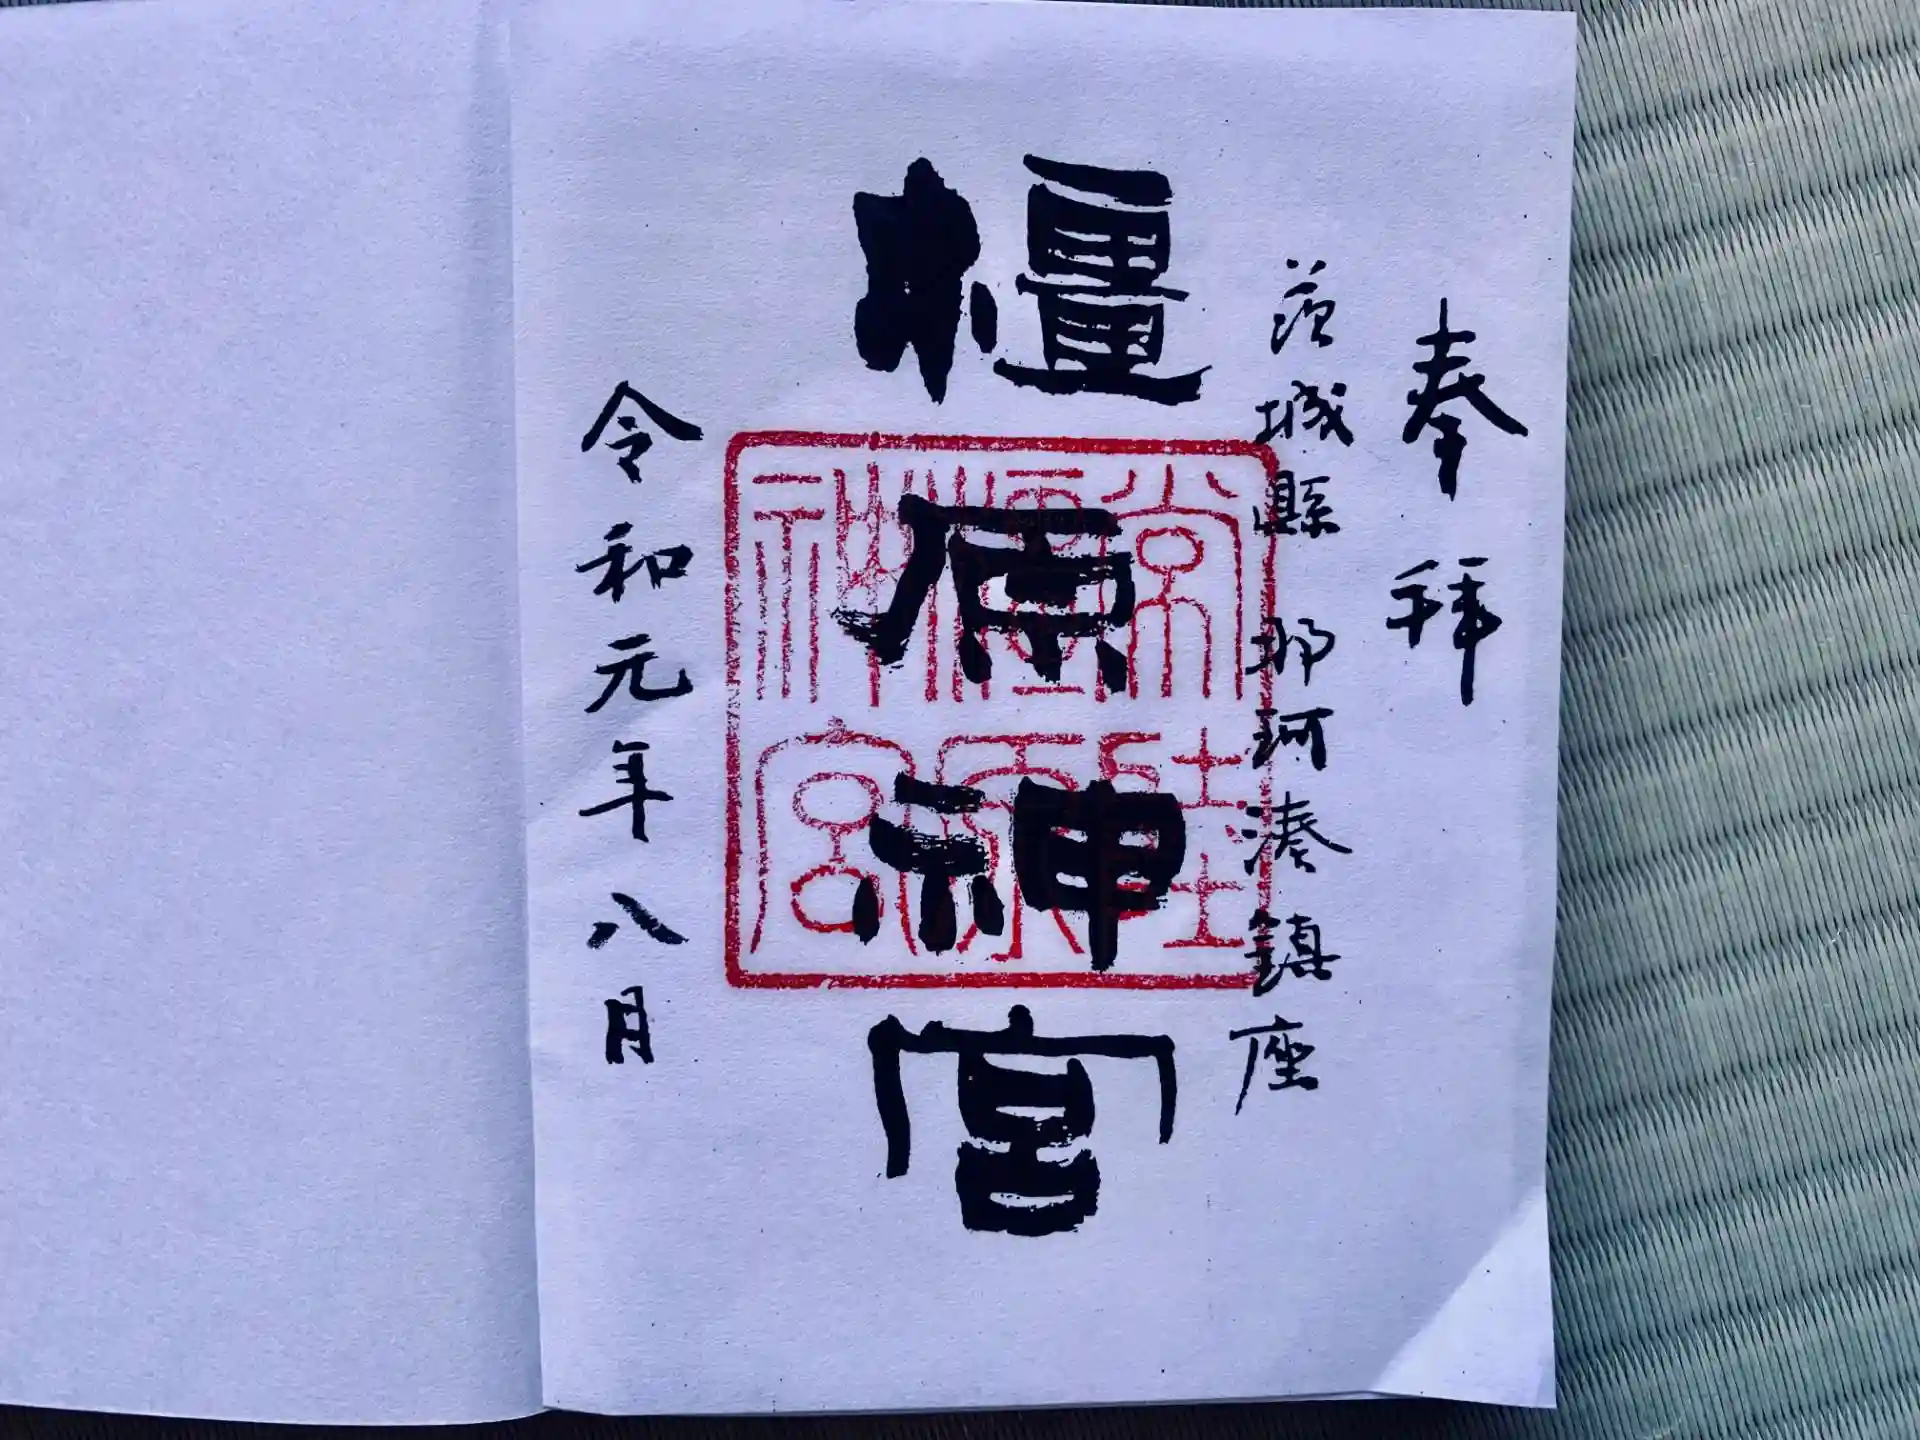 奉拝
茨城縣那珂湊鎮座
橿原神宮
常陸
橿原
神宮
令和元年八月